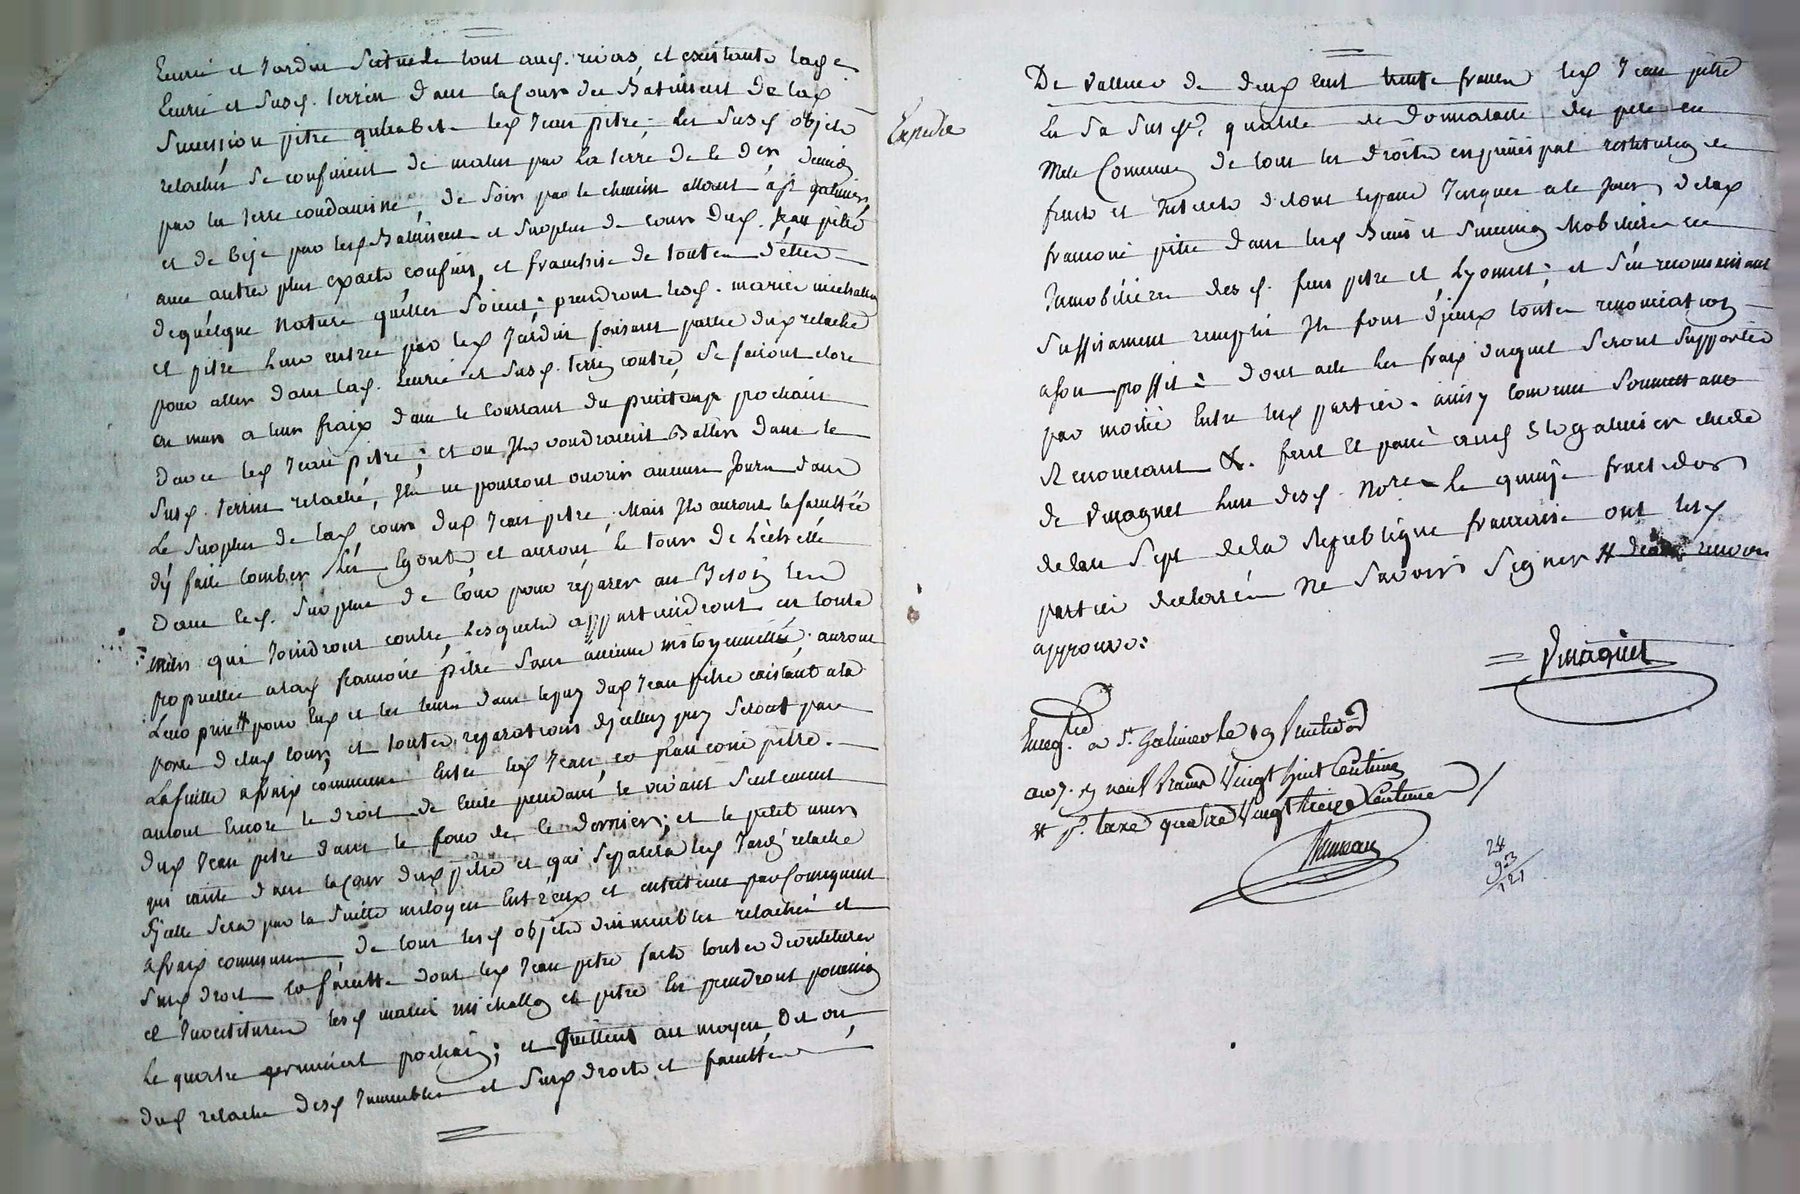 Ecurie et Jardin Scitués le tout aud. rivas, et existants lad.
Ecurie et susd. terrein dans la Cour des Batiments de lad.
Succession pitre qu'habite led. Jean pitre; les susd. objets
relachés se confinent de matin par la terre de
par la terre condamine, de soir par le chemin allant à St. galmier,
et de bize par lesd. Batiments et surplus de cour dud. Jean pitre
avec autres plus exacts confins, et franchise de toutes dettes
dequélque Nature quélles soient; prendront lesd. mariés michallon
et pitre leur entrée par led. Jardin faisant partie dud. relaché
pour aller dans lad. Ecurie et susd. terrein contre, se fairont clore
en murs a leurs fraix dans le Courrant du printemps prochain
d'avec led. Jean pitre; et ou Ils voudroient Battir dans le
susd. terrein relaché, Ils ne pourront ouvrir aucuns Jours dans
Le surplus de lad. cour dud. Jean pitre. Mais Ils auront la faculté
d'y faire tomber les Egouts, et auront le tour de L'échelle
Dans led. surplus de Cour pour réparer au Besoin les
murs qui Joindront contre, Lesquels appartiendront en toute
proprietté alad. francoise pitre sans aucune mitoyennetté; auront
Leau pure pour Eux et les leurs dans le puy dud. Jean pitre existant a la
porte delad. cour, et toutes reparations dicelluy puy seront par
Lasuitte afraix communs Entre led. Jean, et francoise pitre.
auront Encore le droit de cuire pendant le vivant seulement
dud. Jean pitre dans le four de ce dernier; et le petit mur
qui existe dans la Cour dud. pitre et qui separera led. Jardin relaché
dicelle sera par la suitte mitoyen Entr'eux et entretenu par Consequent
afraix communs de tous lesd. objets d'immeubles relachés et
susd. droits et facultés dont led. Jean pitre fait toutes deveitures
et Investitures lesd. mariés michallon et pitre En prendront possession
Le quatre germinal prochain; et Quittent au moyen
dud. relache desd. Immeubles et susd. droits et facultés
Expedié
De valleur de deux cent trente francs led. Jean pitre
En sa susd. qualité de Donnataire des pere et
Mere Commun de tous les droits en principal restitution de
fruits et Interets échus Jusques a ce Jour, delad.
francoise pitre dans lesd. Biens et Succession Mobiliaires et
Immobiliaires desd. feus pitre et Lyonnet; et s'en reconnaissant
suffisament remplis Ils font d'jceux toutes renonciations
a son proffit; dont acte les fraix duquel seront supportés
par moitié Entre lesd. parties. ainsy Convenu soumettant
Renoncant &. fait Et passé aud. St. galmier Etude
de Vinagnet L'un desd. Nores. Le quinze fructidor
de lan sept de la Republique francaise ont lesd.
parties declarés Ne savoir signer renvoi
approuvé:
Vinagnet
Enreg.tré a St. Galmier le 19 fructidor
an 7. Rç neuf francs Vingt huit Centimes
et p.r taxe quatre Vingt treize Centimes
24
93
121